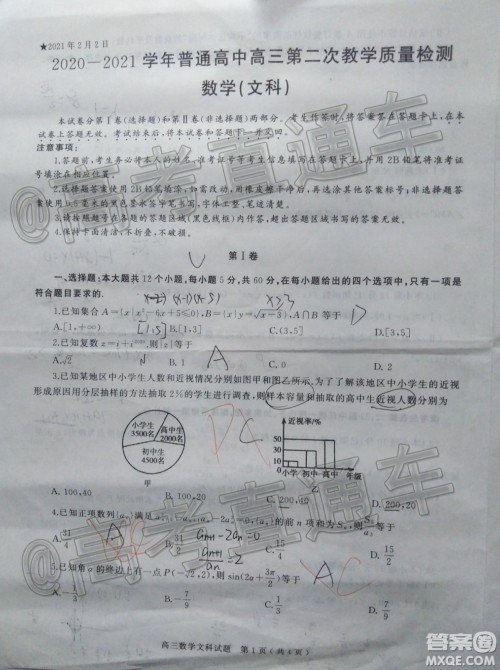 ★2021年2月2日
2020—2021学年普通高中高三第二次教学质量检测
数学(文科)
本试卷分第Ⅰ卷(选择题)和第Ⅱ卷(非选择题)两部分。考生作答时,将答案答在答题卡上,在本
试卷上答题无效。考试结束后,将本试卷和答题卡一并交回。
注意事项:
1.答题前,考生务必将本人的姓名、准考证号等考生信息填写在答题卡上,并用2B铅笔将准考证
号填涂在相应位置。
2.选择题答案使用2B铅笔填涂,如需改动,用橡皮擦干净后,再选涂其他答案标号;非选择题答案
使用0.5毫米的黑色中性(签字)笔或碳素笔书写,字体工整,笔迹清楚。
3.请按照题号在各题的答题区域(黑色线框)内作答,超出答题区域书写的答案无效。
4.保持卡面清洁,不折叠,不破损。
第Ⅰ卷
一、选择题:本大题共12个小题,每小题5分,共60分,在每小题给出的四个选项中,只有一项是
符合题目要求的.
x≥3
1.已知集合A={x|x²-6x+5≤0},B={x|y=√(x-3)},A∩B等于 D
A.[1,+∞) [1,5] B.[1,3] C.(3,5] D.[3,5]
2.已知复数 则|z|等于 A
A.√2 B.1 C.0 D.2
3.已知某地区中小学生人数和近视情况分别如图甲和图乙所示.为了了解该地区中小学生的近视
形成原因用分层抽样的方法抽取2%的学生进行调查,则样本容量和抽取的高中生近视人数分别为
小学生 3500名
高中生 2000名
初中生 4500名
甲
近视率/%
50
30
10
0
小学 初中 高中 年级
乙
A.100,40 B.100,20 C.200,40 D.200,20
4.已知正项数列{aₙ}满足 {aₙ}的前n项和为Sₙ,则 等于
A.31/4 B.31/2 C.15/4 D.15/2
aₙ₊₁-2aₙ=0
aₙ₊₁/aₙ=2
5.已知角α的终边上有一点P(-√2,2),则sin(2α+3π/2)等于 A
A.-1/3 B.-7/9 C.1/3 D.7/9
高三数学文科试题 第1页(共4页)
@高考直通车
@高考直通车